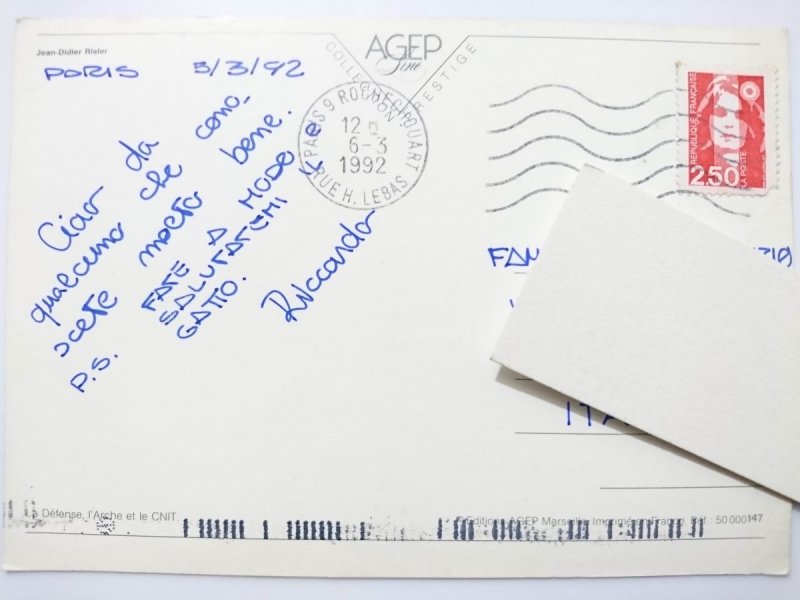 Jean-Didier Risler
AGEP
COLLECTION PRESTIGE
PARIS 3/3/92
Ciao da cono-
qualcuno che
scete molto bene.
P.S. FATE A MODO E
SALUTATEMI IL
GATTO.
Riccardo
PARIS 9 ROCHECHOUART
12
6-3
1992
RUE H. LEBAS
REPUBLIQUE FRANÇAISE
2,50
LA POSTE
FAM
ITA
La Défense, l'Arche et le CNIT
Editions AGEP Marseille Imprimé en France. Réf. 50 000147